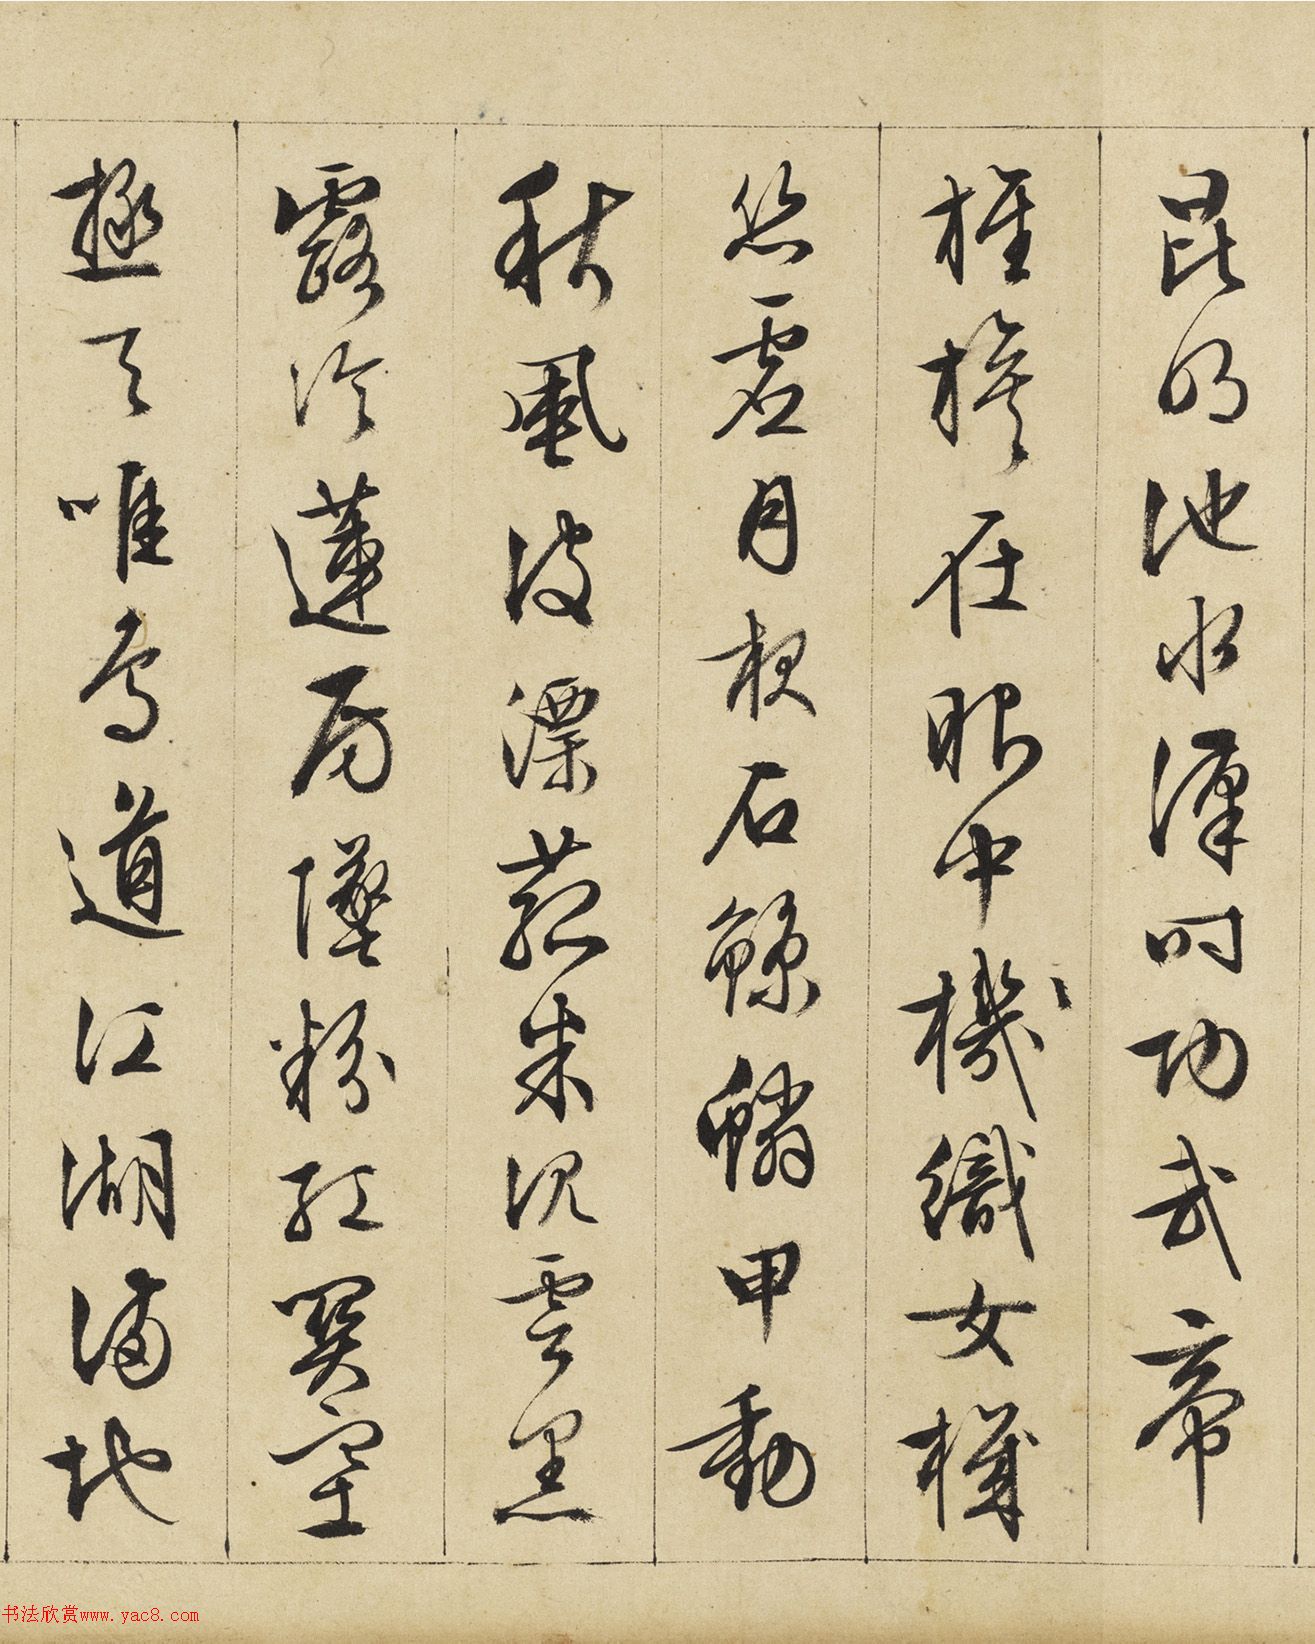 昆明池水漢時功武帝
旌旗在眼中機織女機
絲虛月夜石鯨鱗甲動
秋風波漂菰米沉雲黑
露冷蓮房墜粉紅關塞
極天唯鳥道江湖滿地
书法欣赏www.yac8.com